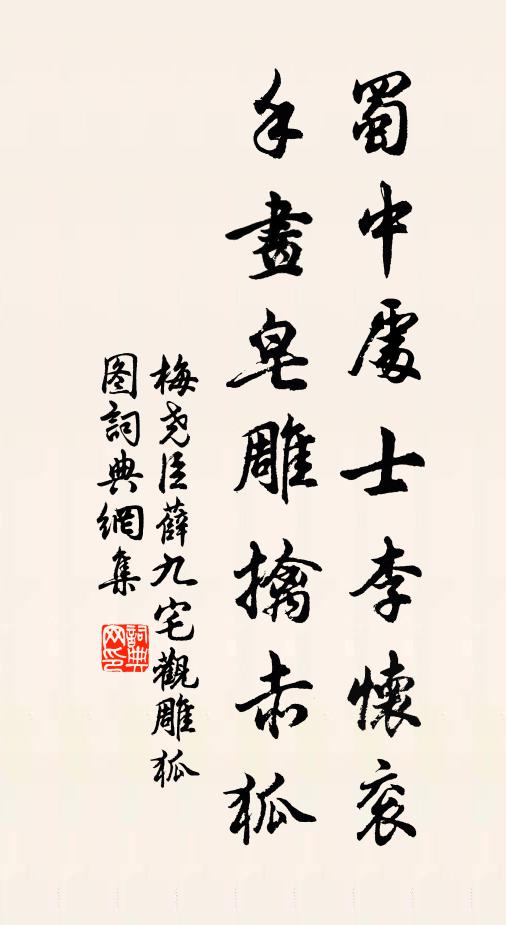 蜀中處士李懷袞
手畫皂雕擒赤狐
梅堯臣薛九宅觀雕狐
图詞典網集
詞典网印